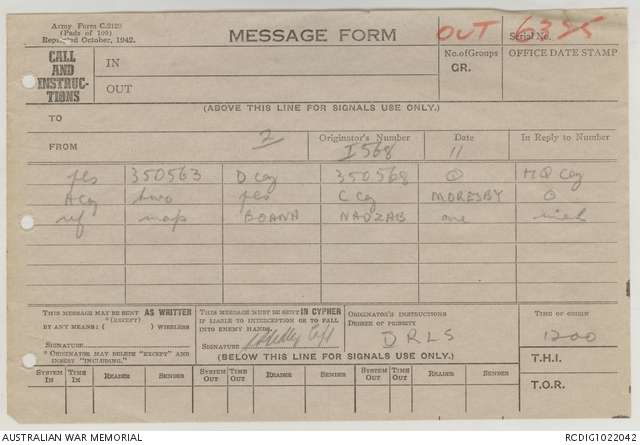 Army Form C.2129
(Pads of 100)
Reprinted October, 1942.
MESSAGE FORM
OUT 6355
Serial No.
CALL AND INSTRUC-TIONS
IN
OUT
No. of Groups
GR.
OFFICE DATE STAMP
(ABOVE THIS LINE FOR SIGNALS USE ONLY.)
TO
FROM 2
Originator's Number
I568
Date
11
In Reply to Number
pls 350563 D Coy 350568 O HQ Coy
A Coy two pls C Coy MORESBY O
ref map BOANA NADZAB one inch
THIS MESSAGE MAY BE SENT AS WRITTEN
*(EXCEPT)
BY ANY MEANS: ( ) WIRELESS
SIGNATURE
* ORIGINATOR MAY DELETE "EXCEPT" AND INSERT "INCLUDING."
THIS MESSAGE MUST BE SENT IN CYPHER
IF LIABLE TO INTERCEPTION OR TO FALL
INTO ENEMY HANDS.
SIGNATURE Capt
ORIGINATOR'S INSTRUCTIONS
DEGREE OF PRIORITY
DRLS
TIME OF ORIGIN
1200
(BELOW THIS LINE FOR SIGNALS USE ONLY.)
T.H.I.
T.O.R.
SYSTEM IN TIME IN READER SENDER SYSTEM OUT TIME OUT READER SENDER SYSTEM OUT TIME OUT READER SENDER
AUSTRALIAN WAR MEMORIAL
RCDIG1022042